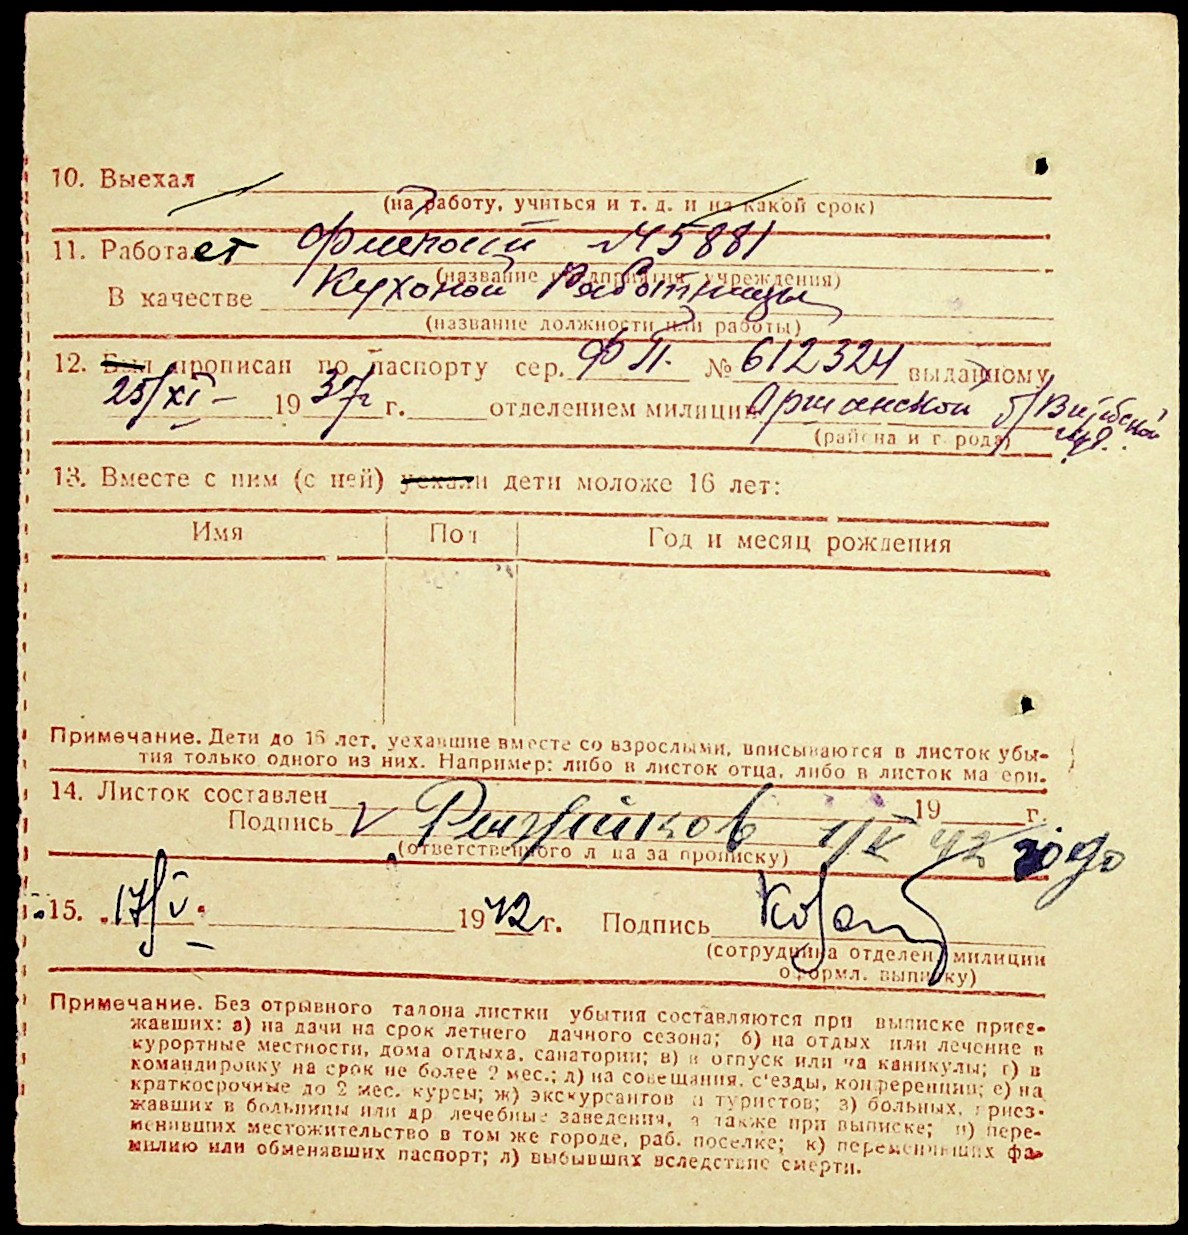 10. Выехал
(на работу, учиться и т. д. и на какой срок)
11. Работает № 5881
(название предприятия, учреждения)
В качестве Кухоной Работницы
(название должности или работы)
12. Был прописан по паспорту сер. ФП. № 612324 выданному
25/XI – 1937г г. отделением милиции Оршанской
(района и города)
13. Вместе с ним (с ней) уехали дети моложе 16 лет:
Имя Пол Год и месяц рождения
Примечание. Дети до 16 лет, уехавшие вместе со взрослыми, вписываются в листок убы-
тия только одного из них. Например: либо в листок отца, либо в листок матери.
14. Листок составлен 19 г.
Подпись 42 года
(ответственного лица за прописку)
15. 17/V 1942 г. Подпись
(сотрудника отделен. милиции
оформл. выписку)
Примечание. Без отрывного талона листки убытия составляются при выписке приез-
жавших: а) на дачи на срок летнего дачного сезона; б) на отдых или лечение в
курортные местности, дома отдыха, санатории; в) в отпуск или на каникулы; г) в
командировку на срок не более 2 мес.; д) на совещания, с'езды, конференции; е) на
краткосрочные до 2 мес. курсы; ж) экскурсантов и туристов; з) больных, приез-
жавших в больницы или др. лечебные заведения, а также при выписке; и) пере-
менивших местожительство в том же городе, раб. поселке; к) переменивших фа-
милию или обменявших паспорт; л) выбывших вследствие смерти.